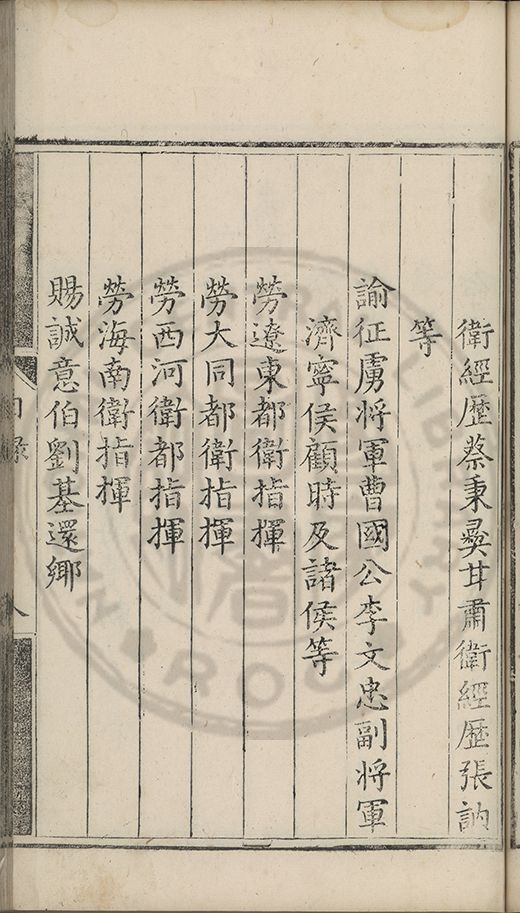 衛經歷蔡秉彝甘肅衛經歷張訥
等
諭征虜將軍曹國公李文忠副將軍
濟寧侯顧時及諸侯等
勞遼東都衛指揮
勞大同都衛指揮
勞西河衛都指揮
勞海南衛指揮
賜誠意伯劉基還鄉